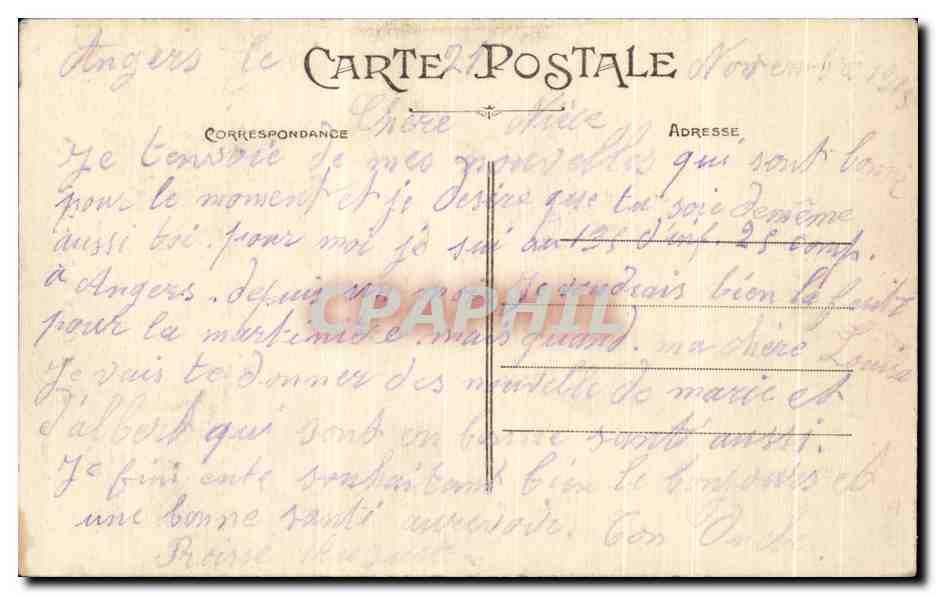 Angers le 21 Novembre 1915
CARTE POSTALE
Chère Nièce
CORRESPONDANCE
ADRESSE
Je tenvoie de mes nouvelles qui sont bonne
pour le moment et je desire que tu soie demême
aussi toi. pour moi je sui au 135 d'inf. 25 comp.
à Angers. depuis un moi Je voudrais bien
pour la martinique mais quand. ma chère Louise
Je vais te donner des nouvelle de marie et
d'albert qui sont en bonne santé aussi.
Je fini ente souhaitant bien le bonjours et
une bonne santé aurevoir. Ton Oncle
CPAPHIL